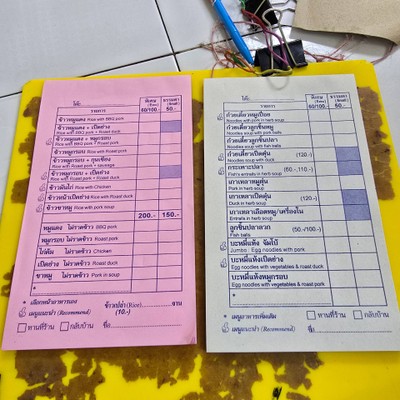 โต๊ะ
รายการ
พิเศษ
60/100.-
ธรรมดา
(Small)
50.-
ข้าวหมูแดง Rice with BBQ pork
ข้าวหมูแดง + เป็ดย่าง
ข้าวหมูแดง + หมูกรอบ
Rice with BBQ pork + Roast pork
ข้าวหมูกรอบ Rice with Roast pork
ข้าวหมูกรอบ + กุนเชียง
Rice with Roast pork + sausage
ข้าวหมูกรอบ + เป็ดย่าง
Rice with Roast pork + Roast duck
ข้าวมันไก่ Rice with Chicken
ข้าวหน้าเป็ดย่าง Rice with Roast duck
ข้าวขาหมู Rice with pork soup
200.- 150.-
หมูแดง ไม่ราดข้าว BBQ pork
หมูกรอบ ไม่ราดข้าว Roast pork
ไก่ต้ม ไม่ราดข้าว Chicken
เป็ดย่าง ไม่ราดข้าว Roast duck
ขาหมู ไม่ราดข้าว Pork in soup
*
ข้าวเปล่า (Rice)..........จาน
(10.-)
เมนูแนะนำ (Recommend)
ทานที่ร้าน กลับบ้าน ชื่อ
โต๊ะ
รายการ
พิเศษ
60/100.-
ธรรมดา
(Small)
50.-
ก๋วยเตี๋ยวหมูเปื่อย
Noodles with pork in herb soup
ก๋วยเตี๋ยวลูกชิ้นหมู
Noodles with pork balls
ก๋วยเตี๋ยวลูกชิ้นปลา
Noodles with fish balls
ก๋วยเตี๋ยวเป็ดตุ๋น (120.-)
Noodles soup with duck
กระเพาะปลา (50.-,110.-)
Fish's entrails in herb soup
เกาเหลาหมูตุ๋น
Pork in herb soup
เกาเหลาเป็ดตุ๋น (120.-)
Duck in herb soup
เกาเหลาเลือดหมู/เครื่องใน
Entrails in herb soup
ลูกชิ้นปลาลวก (50.-/100.-)
Fish balls
บะหมี่แห้ง จัมโบ้
Jumbo : Egg noodles with pork
บะหมี่แห้งเป็ดย่าง
Egg noodles with vegetables & roast duck
บะหมี่แห้งหมูกรอบ
Egg noodles with vegetables & roast pork
*
* เมนูอาหารเพิ่มเติม
เมนูแนะนำ (Recommend)
ทานที่ร้าน กลับบ้าน
ชื่อ